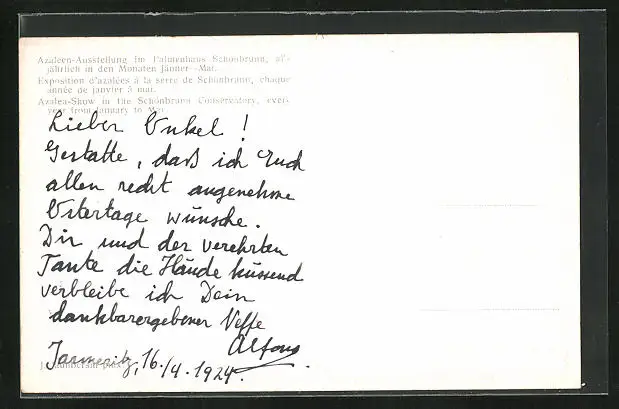 Azaleen-Ausstellung im Palmenhaus Schönbrunn, all-
jährlich in den Monaten Jänner—Mai.
Exposition d'azalées à la serre de Schönbrunn, chaque
année de janvier à mai.
Azalea-Show in the Schönbrunn Conservatory, ever-
year from January to Mai.
Lieber Onkel !
Gestatte, daß ich Euch
allen recht angenehme
Ostertage wünsche.
Dir und der verehrten
Tante die Hände küssend
verbleibe ich Dein
dankbarergebener Neffe
Alfons.
Jarmeritz, 16./4. 1924.